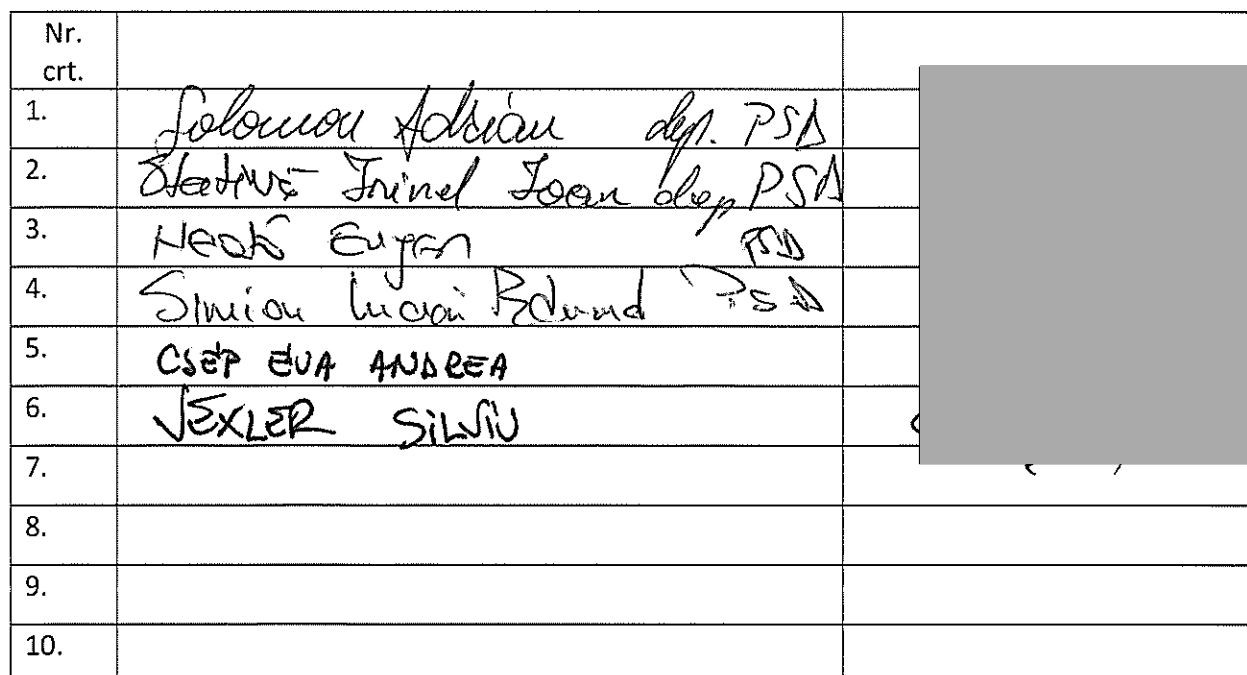 Nr.
crt.
1. Solomon Adrian dep. PSD
2. Stativă Irinel Ioan dep PSD
3. Neață Eugen PSD
4. Simion Lucian Eduard PSD
5. CSEP EVA ANDREA
6. VEXLER SILVIU
7.
8.
9.
10.